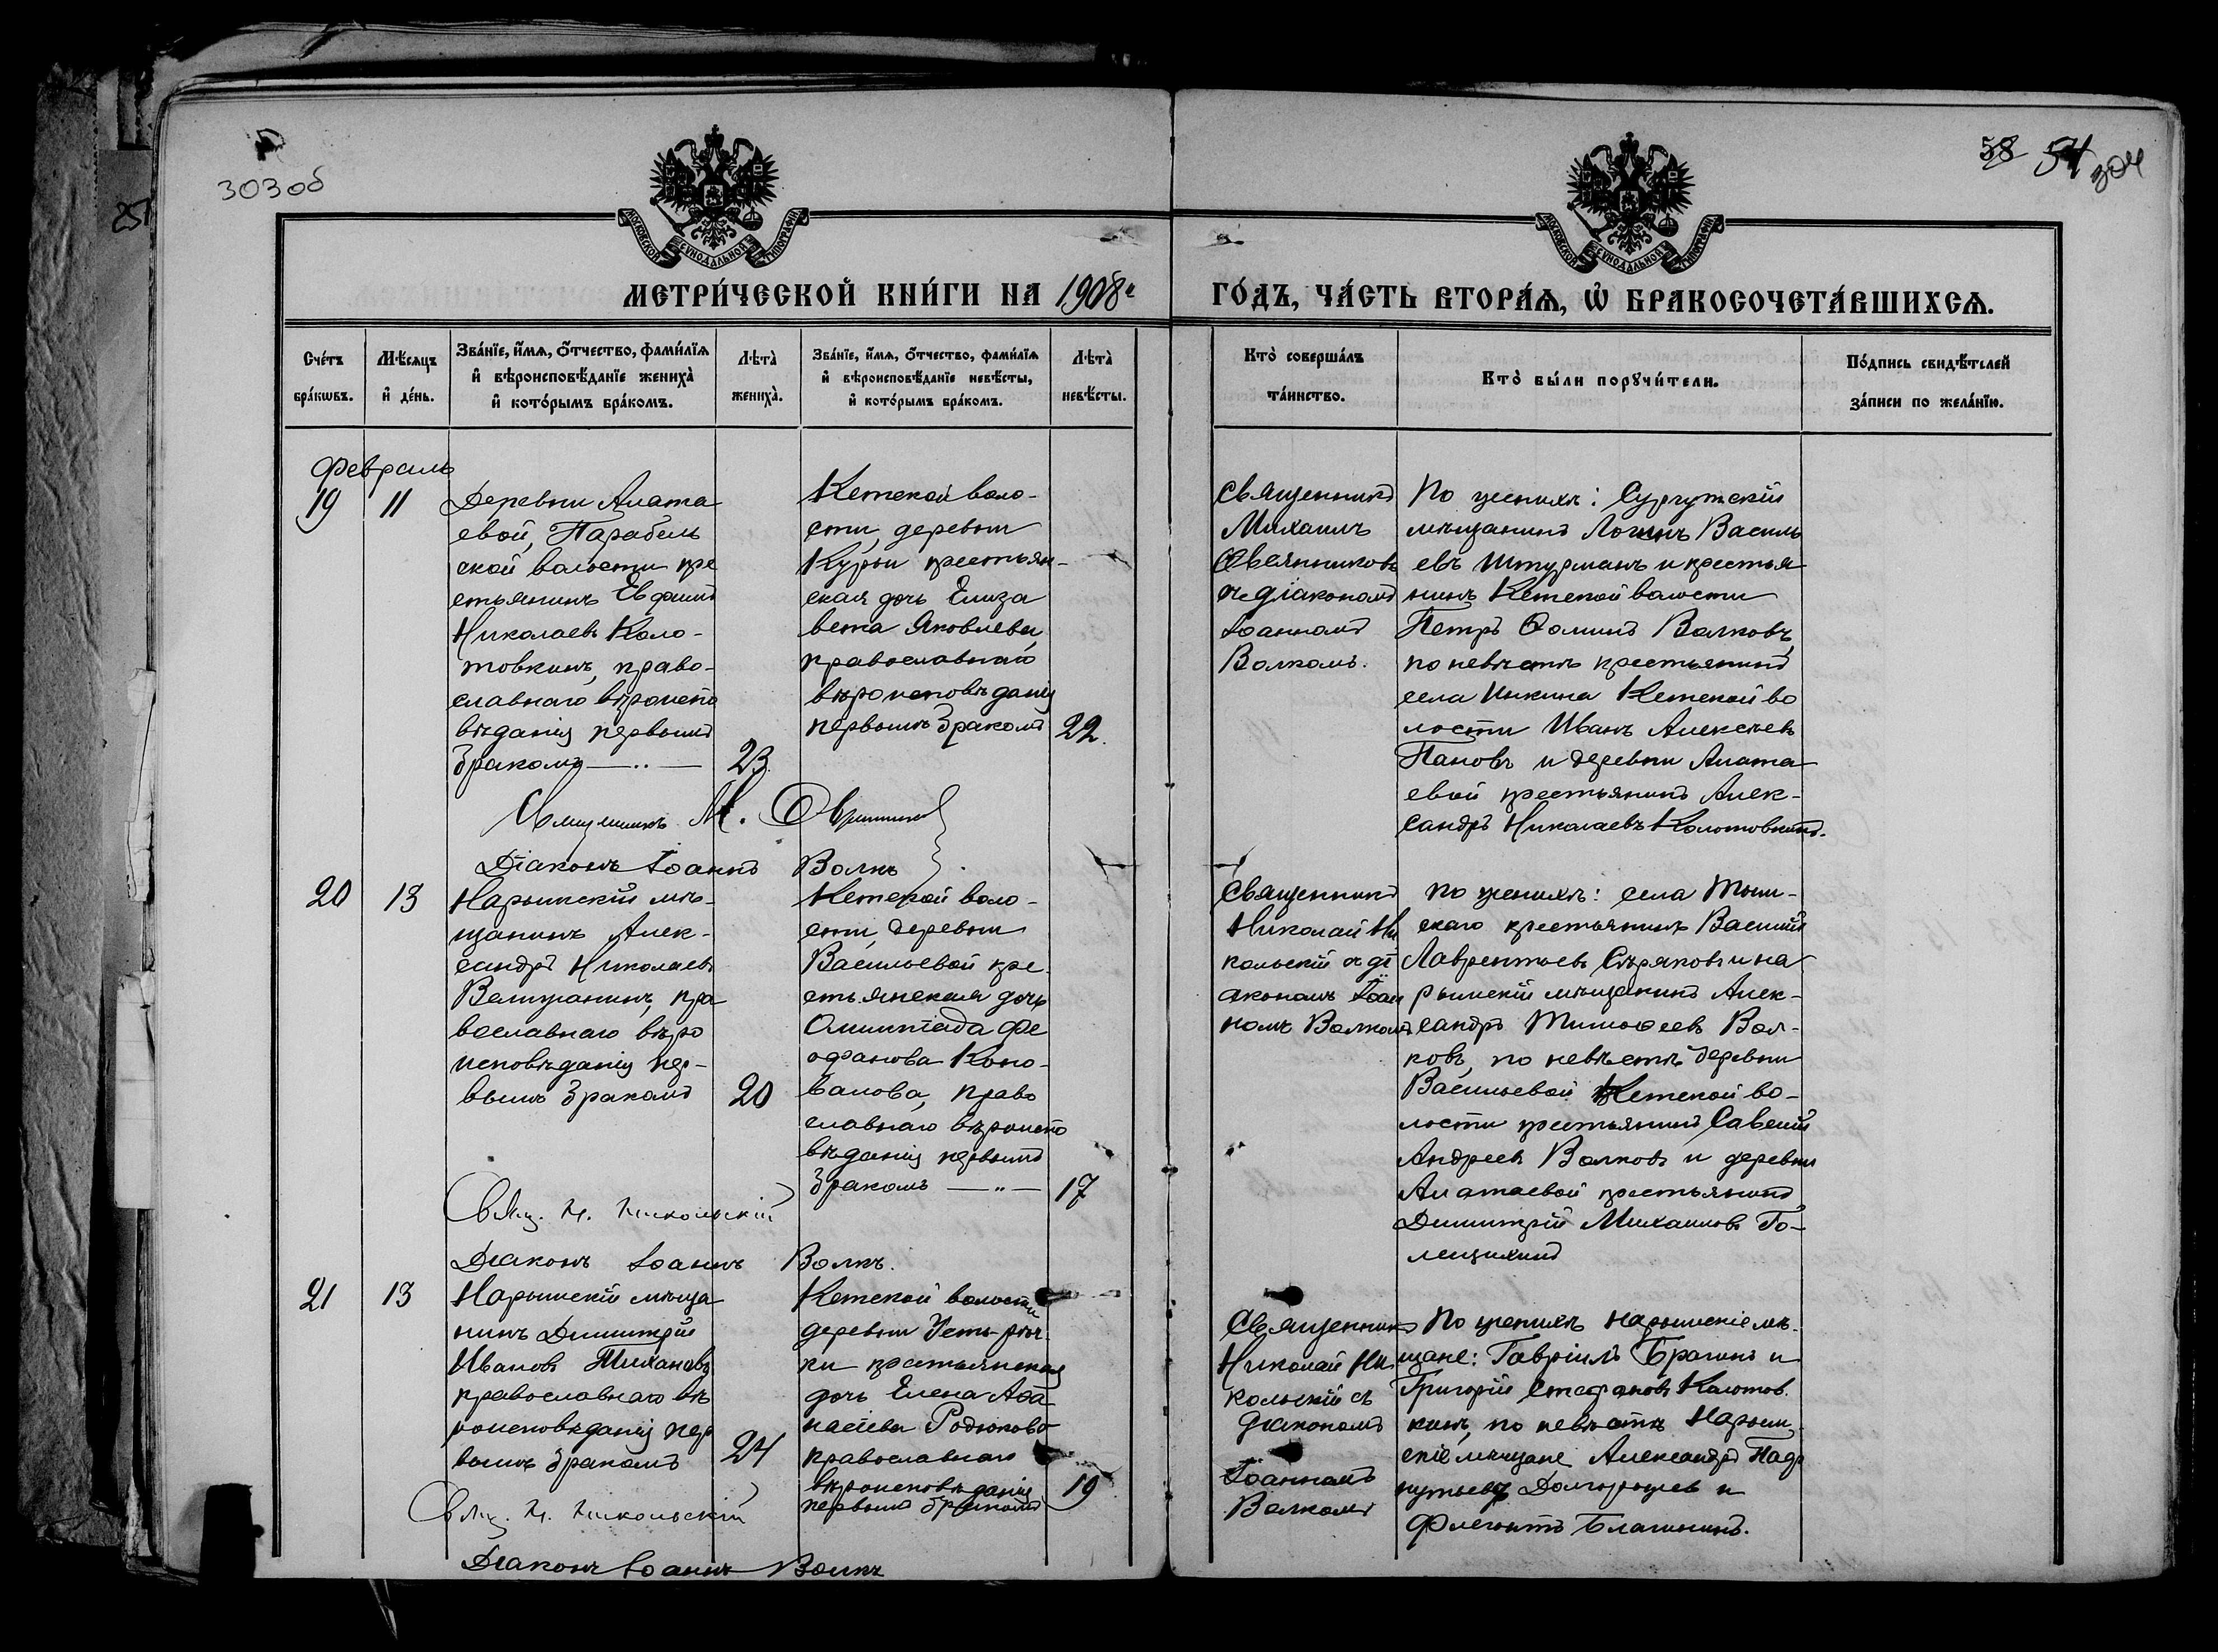 303об
58 54 304
251
МОСКОВСКОЙ СѴНОДАЛЬНОЙ ТИПОГРАФІИ
МОСКОВСКОЙ СѴНОДАЛЬНОЙ ТИПОГРАФІИ
МЕТРИ́ЧЕСКОЙ КНИ́ГИ НА 1908й
ГО́ДЪ, ЧА́СТЬ ВТОРА́Ѧ, Ѡ҆ БРАКОСОЧЕТА́ВШИХСѦ.
Сче́тъ бра́кѡвъ.
Мѣ́сѧцъ и҆ де́нь.
Зва́нїе, и҆́мѧ, ѻ҆́тчество, фами́лїѧ
и҆ вѣроисповѣ́данїе жениха̀
и҆ кото́рымъ бра́комъ.
Лѣта̀ жениха̀.
Зва́нїе, и҆́мѧ, ѻ҆́тчество, фами́лїѧ
и҆ вѣроисповѣ́данїе невѣ́сты,
и҆ кото́рымъ бра́комъ.
Лѣта̀ невѣ́сты.
Кто̀ соверша́лъ
та́инство.
Кто̀ бы́ли порꙋчи́тели.
По́дпись свидѣ́телей
за́писи по жела́нїю.
Февраль
19
11
Деревни Алата
евой, Парабель
ской волости кре
стьянинъ Евфимій
Николаевъ Коло-
товкинъ, право-
славнаго вѣроиспо
вѣданія первымъ
бракомъ
23
Кетской воло-
сти, деревни
Курьи крестьян-
ская дочь Елиза
вета Яковлева,
православнаго
вѣроисповѣданія
первымъ бракомъ
22.
Священникъ
Михаилъ
Овсянниковъ
съ діакономъ
Іоанномъ
Волкомъ.
По женихѣ: Сургутскій
мѣщанинъ Логинъ Василь
евъ Штурманъ и крестья
нинъ Кетской волости
Петръ Ѳоминъ Волковъ,
по невѣстѣ крестьянинъ
села Инкина Кетской во
лости Иванъ Алексѣевъ
Пановъ и деревни Алата
евой крестьянинъ Алек-
сандръ Николаевъ Колотовкинъ.
Священникъ М. Овсянниковъ
Діаконъ Іоаннъ Волкъ
20
13
Нарымскій мѣ-
щанинъ Алек-
сандръ Николаевъ
Велижанинъ, пра
вославнаго вѣро
исповѣданія пер-
вымъ бракомъ
20
Кетской воло-
сти, деревни
Васильевой кре-
стьянская дочь
Олимпіада Фе
офанова Коно-
валова, право
славнаго вѣроиспо
вѣданія первымъ
бракомъ
17
Священникъ
Николай Ни
кольскій съ ді
акономъ Іоан
номъ Волкомъ
По женихѣ: села Тыми-
скаго крестьянинъ Василій
Лаврентьевъ Сѣряковъ и на
рымскій мѣщанинъ Алек-
сандръ Тимоѳеевъ Вол-
ковъ, по невѣстѣ деревни
Васильевой Кетской во-
лости крестьянинъ Савелій
Андреевъ Волковъ и деревни
Алатаевой крестьянинъ
Димитрій Михаиловъ Го-
лещихинъ
Свящ. Н. Никольскій
Діаконъ Іоаннъ Волкъ.
21
13
Нарымскій мѣща
нинъ Димитрій
Ивановъ Тихановъ
православнаго вѣ
роисповѣданія пер
вымъ бракомъ
24
Кетской волости
деревни Усть-рѣч-
ки крестьянская
дочь Елена Аѳа
насіева Родюкова
православнаго
вѣроисповѣданія
первымъ бракомъ
19
Священникъ
Николай Ни
кольскій съ
діакономъ
Іоанномъ
Волкомъ
По женихѣ нарымскіе мѣ-
щане: Гавріилъ Брагинъ и
Григорій Стефановъ Колотов
кинъ, по невѣстѣ Нарым
скіе мѣщане Александръ
Долгорушевъ и
Флегонтъ Благининъ.
Свящ. Н. Никольскій
Діаконъ Іоаннъ Волкъ